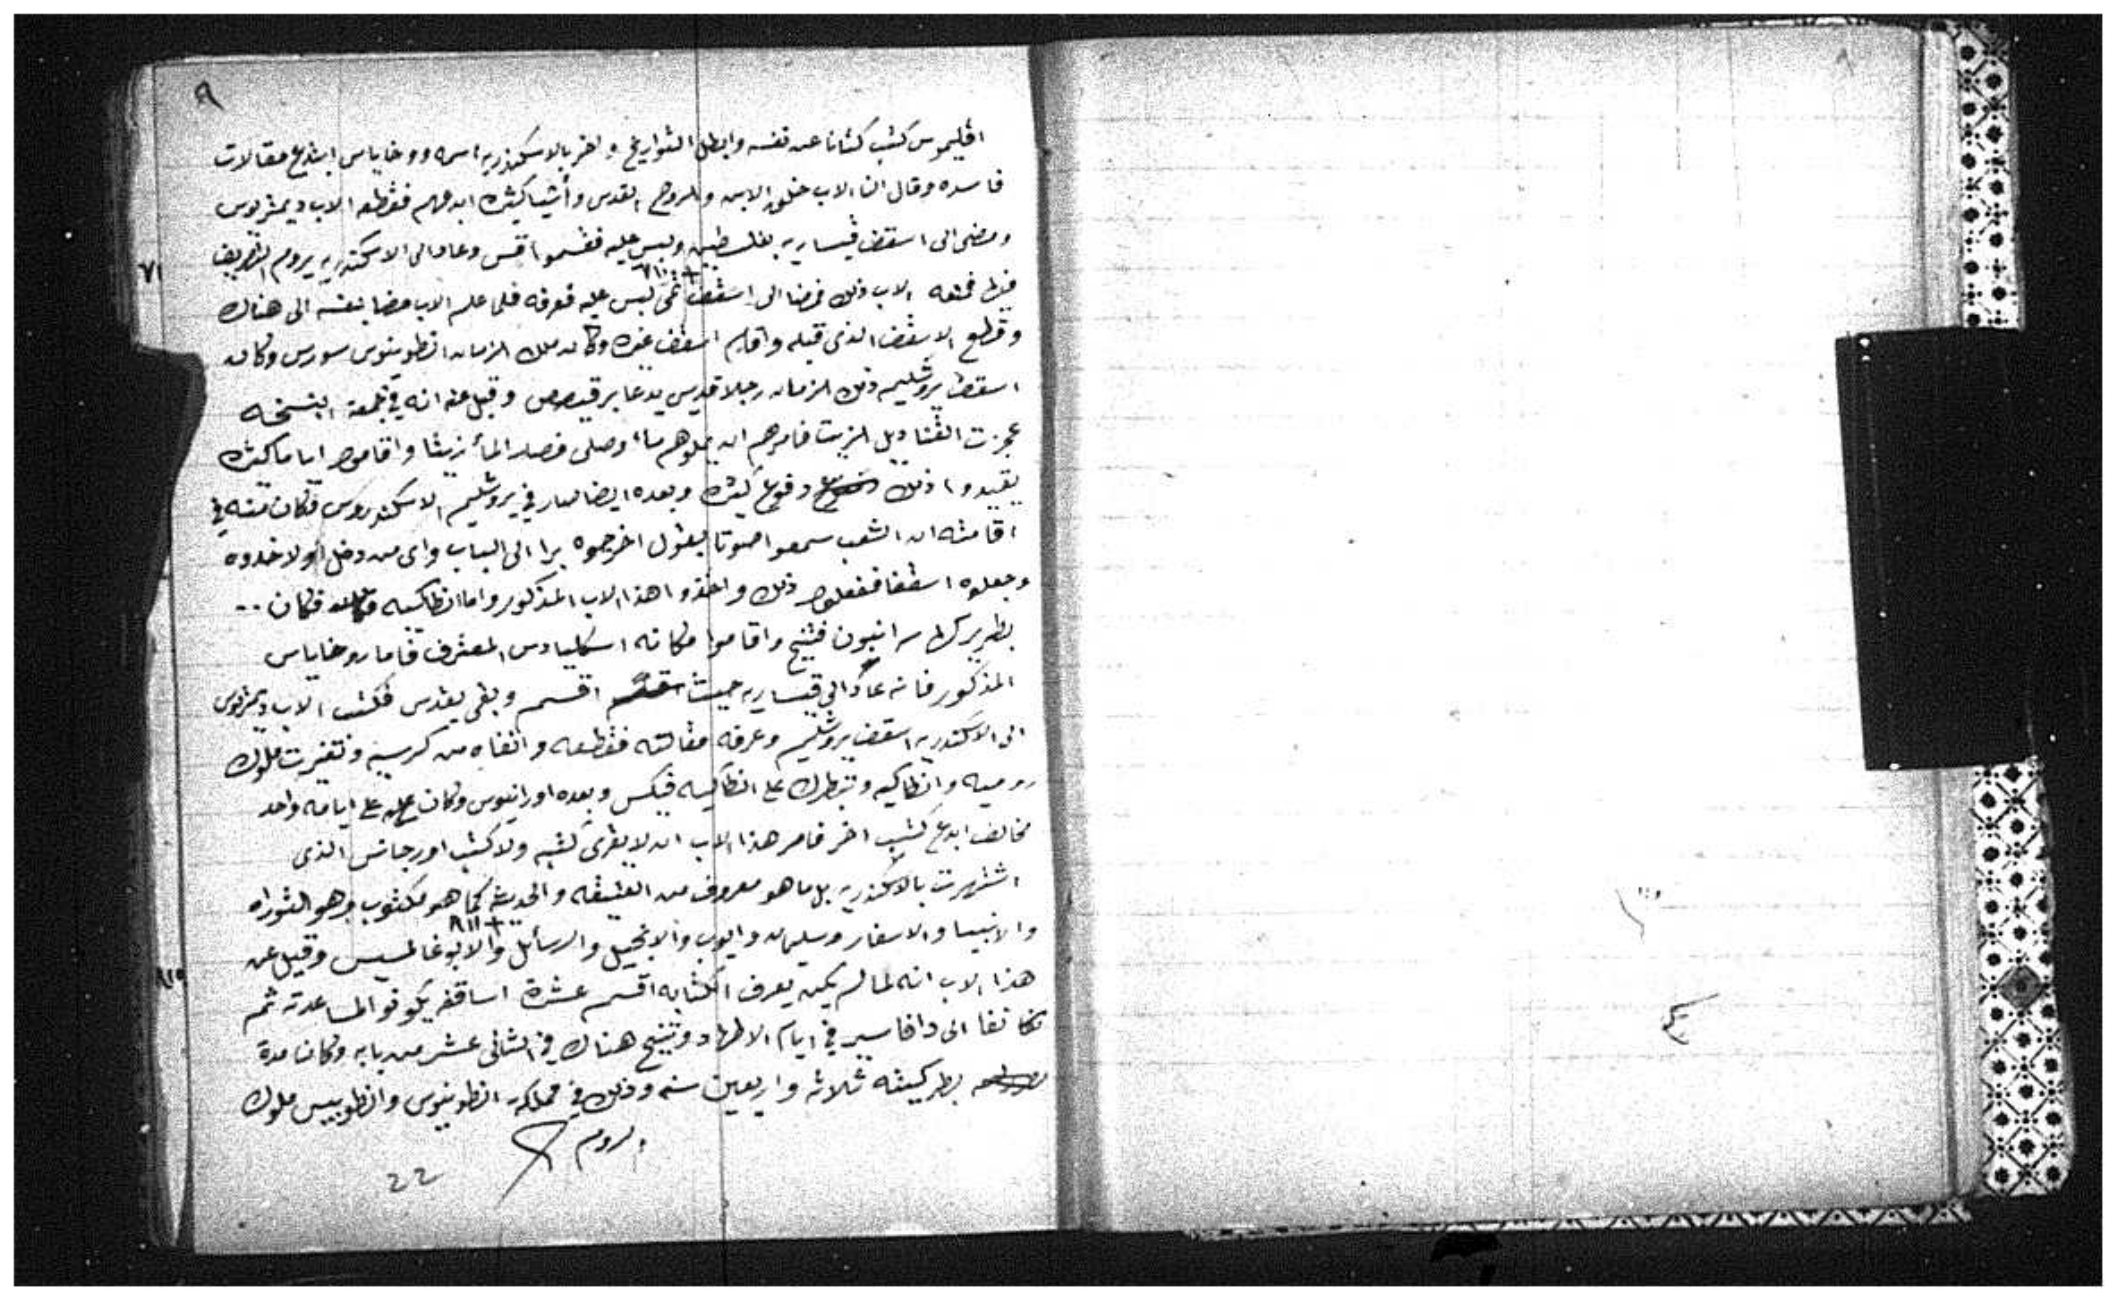 ٩
اقليموس كتب كتابا عن نفسه وابطل التواريخ واخر بالاسكندريه اسمه ووخاياس ابتدع مقالات
فاسده وقال ان الاب خلق الابن والروح القدس وأشيا كثيره ابدعهم فقطعه الاب ديمتريوس
ومضى الى اسقف قيساريه بفلسطين ولبس عليه فقسموا قس وعاد الى الاسكندريه يروم
الاب ذلك فمضا الى اسقف تمى لبس عليه فعرفه فلما علم الاب مضا بنفسه الى هناك
٧١١٠ +
٧١
وقطع الاسقف الذى قبله واقام اسقف غيره وكان ملك الزمان انطونينوس سورس وكان
اسقف يروشليم ذلك الزمان رجلا قديس يدعا برقيصص وقيل عنه انه في جمعة البسخه
عجزت القناديل الزيت فامرهم ان يملوهم ماا وصلى فصار المأ زيتا واقاموا اياما كثيره
يقيدوا ذلك دفوع كثيره وبعده ايضا صار في يروشليم الاسكندروس وكان منه في
اقامته ان الشعب سمعوا صوتا يقول اخرجوه برا الى الباب واى من دخل اولا خدوه
وجعلوه اسقفا ففعلوا ذلك واخذوا هذا الاب المذكور واما انطاكيه فكان ..
بطريركها سرانيون فتنيح واقاموا مكانه اسكلبيادس المعترف فاما روخاياس
المذكور فانه عاد الى قيساريه حيث اقسم وبقى يقدس فكتب الاب ديمتريوس
الى الاسكندريه اسقف يروشليم وعرفه مقالته فقطعه وانفاه من كرسيه وتغيرت ملوك
روميه وانطاكيه وتبطرك على انطاكيه فيكس وبعده اورانيوس وكان على ايامه واحد
مخالف ابدع كتب اخر فامر هذا الاب ان لا يقرى كتبه ولا كتب اورجانس الذى
اشتهرت بالاسكندريه بل ما هو معروف من العتيقه والحديثه كما هو مكتوب وهو التوراه
والانبيا والاسفار وسليمان وايوب والانجيل والرسائل والابوغالمسيس وقيل عن
٨١١ +
٨١٥
هذا الاب انه لما لم يكن يعرف الكتابه اقسم عشرة اساقفه يكونوا لمساعدته ثم
نفا الى دافاسير في ايام الاطهاد وتنيح هناك في الثانى عشر من بابه وكان مدة
بطركيته ثلاثه واربعين سنه وذلك في مملكة انطونينوس وانطوبيس ملوك
الروم
22